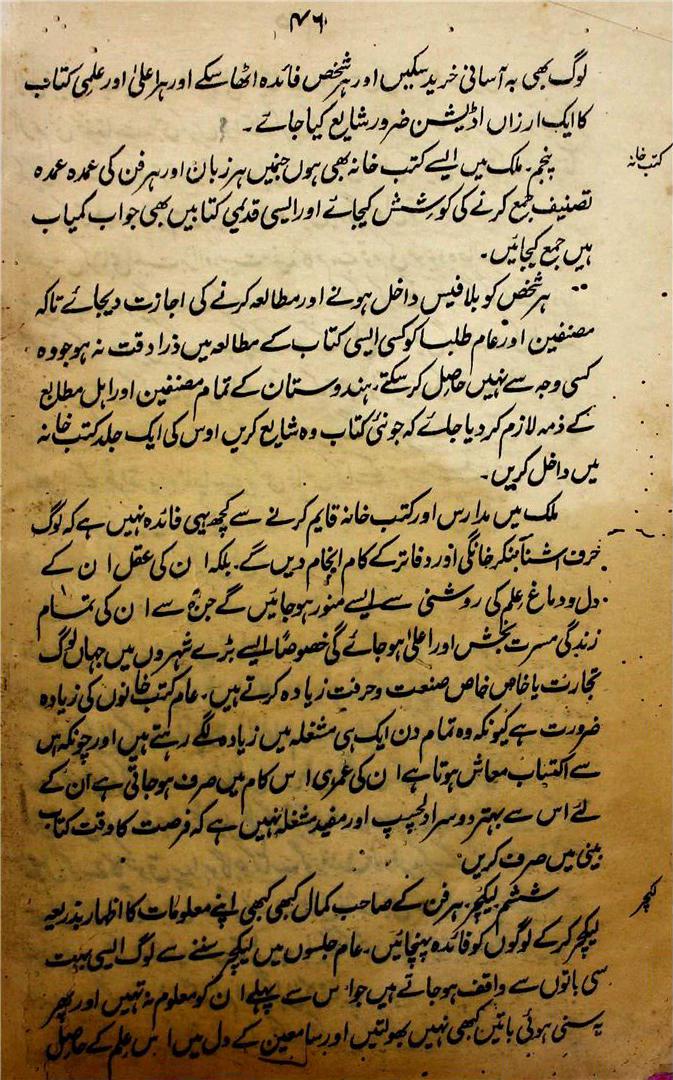 ۴۶
لوگ بھی بہ آسانی خرید سکیں اور ہر شخص فائدہ اٹھا سکے اور ہر اعلیٰ اور علمی کتاب
کا ایک ارزاں اڈیشن ضرور شایع کیا جائے۔
کتب خانہ
پنجم۔ ملک میں ایسے کتب خانہ بھی ہوں جنمیں ہر زبان اور ہر فن کی عمدہ عمدہ
تصنیف جمع کرنے کی کوشش کیجائے اور ایسی قدیمی کتابیں بھی جو اب کمیاب
ہیں جمع کیجائیں۔
ہر شخص کو بلا فیس داخل ہونے اور مطالعہ کرنے کی اجازت دیجائے تاکہ
مصنفین اور عام طلبا کو کسی ایسی کتاب کے مطالعہ میں ذرا دقت نہ ہو جو وہ
کسی وجہ سے نہیں حاصل کر سکتے۔ ہندوستان کے تمام مصنفین اور اہل مطابع
کے ذمہ لازم کر دیا جائے کہ جو نئی کتاب وہ شایع کریں اوس کی ایک جلد کتب خانہ
میں داخل کریں۔
ملک میں مدارس اور کتب خانہ قایم کرنے سے کچھ یہی فائدہ نہیں ہے کہ لوگ
حرف اشنا بنکر خانگی اور دفاتر کے کام انجام دیں گے۔ بلکہ ان کی عقل ان کے
دل و دماغ علم کی روشنی سے ایسے منور ہو جائیں گے جن سے ان کی تمام
زندگی مسرت بخش اور اعلیٰ ہو جائے گی خصوصاً ایسے بڑے شہروں میں جہاں لوگ
تجارت یا خاص خاص صنعت و حرفت زیادہ کرتے ہیں۔ عام کتب خانوں کی زیادہ
ضرورت ہے کیونکہ وہ تمام دن ایک ہی مشغلہ میں زیادہ لگے رہتے ہیں اور چونکہ اس
سے اکتساب معاش ہوتا ہے ان کی عمریں اس کام میں صرف ہو جاتی ہے ان کے
لئے اس سے بہتر دوسرا دلچسپ اور مفید مشغلہ نہیں ہے کہ فرصت کا وقت کتاب
بینی میں صرف کریں
لیکچر
ششم لیکچر۔ ہر فن کے صاحب کمال کبھی کبھی اپنے معلومات کا اظہار بذریعہ
لیکچر کر کے لوگوں کو فائدہ پہنچائیں۔ عام جلسوں میں لیکچر سننے سے لوگ ایسی بہت
سی باتوں سے واقف ہو جاتے ہیں جو اس سے پہلے ان کو معلوم نہ تہیں اور پھر
یہ سنی ہوئی باتیں کبھی نہیں بھولتیں اور سامعین کے دل میں اس علم کے حاصل